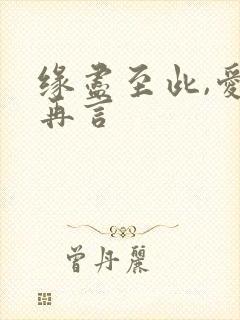 缘尽至此,爱
再言
曾丹麗